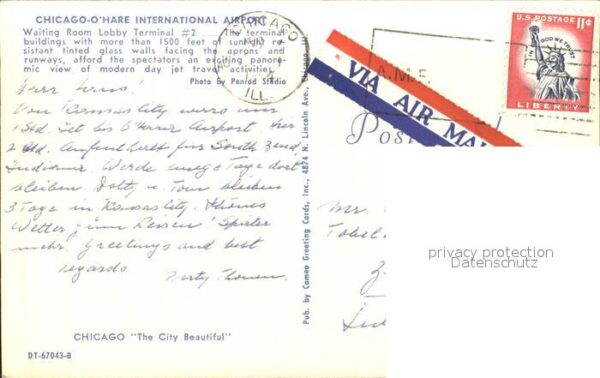 CHICAGO-O'HARE INTERNATIONAL AIRPORT
Waiting Room Lobby Terminal #2 The terminal
buildings with more than 1500 feet of sunlight re-
sistant tinted glass walls facing the aprons and
runways, afford the spectators an exciting panore-
mic view of modern day jet travel activities.
Photo by Penrod Studio
CHICAGO
ILL.
U.S. POSTAGE 11¢
IN GOD WE TRUST
LIBERTY
A.M.F.
VIA AIR MA
Post
Von Kansas City
1 Std. Jet bis O'Herer Airport hier
2 Std. Aufenthalt für South Bend
Indiana Werde Tage dort
bleiben. Dolly u. Tom bleiben
3 Tage in Kansas City. Schönes
Wetter zum Reisen! Später
mehr. Greetings and best
regards
Pub. by Cameo Greeting Cards, Inc., 4874 N. Lincoln Ave., Chicago
Mr.
privacy protection
Datenschutz
CHICAGO "The City Beautiful"
DT-67043-B